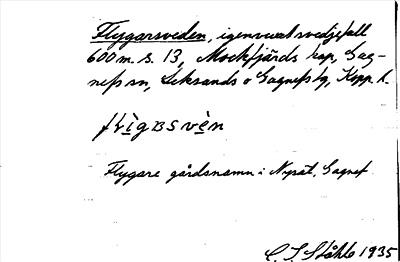 Flygarsveden, igenvuxet svedjefall
600 m. s. 13, Mockfjärds kap, Gag-
nefs sn, Leksands o Gagnefs tg, Kopp. l.
Flygare gårdsnamn i Nysät, Gagnef
C. I. Ståhle 1935